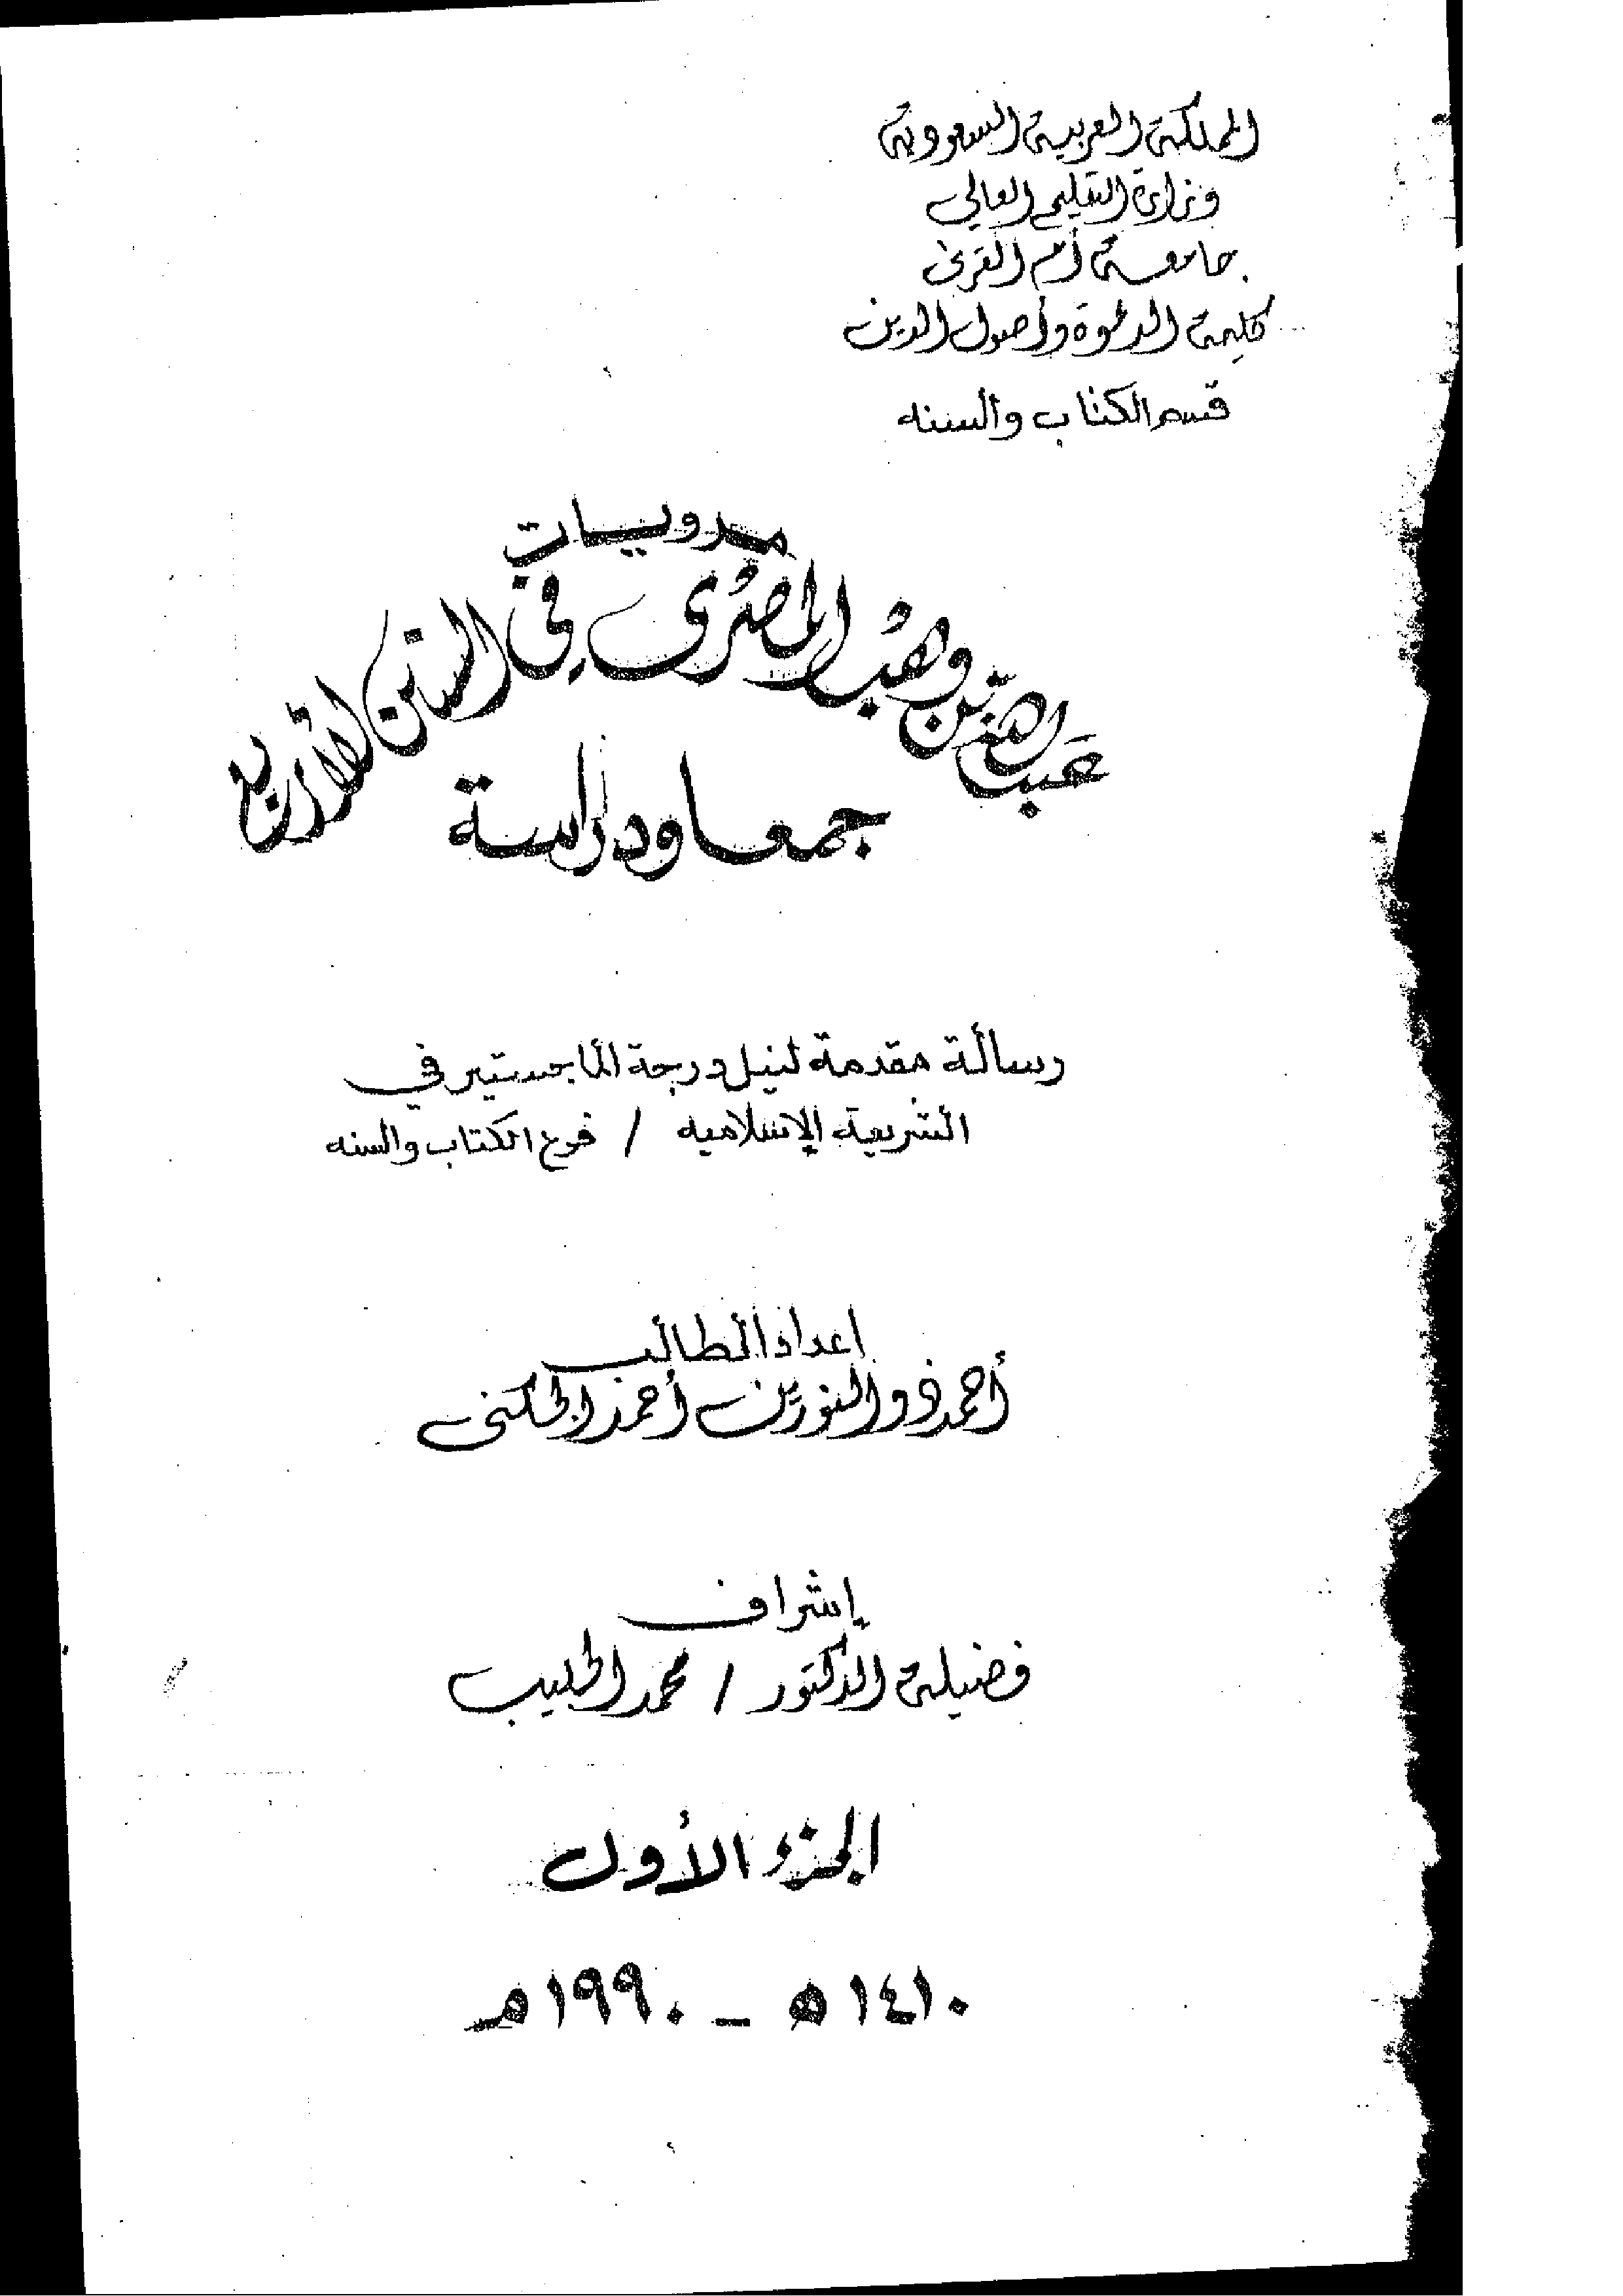 المملكة العربية السعودية
وزارة التعليم العالي
جامعة أم القرى
كلية الدعوة وأصول الدين
قسم الكتاب والسنه
مرويات
عبد الله بن وهب المصري في السنن الأربع
جمعا ودراسة
رسالة مقدمة لنيل درجة الماجستير في
الشريعة الإسلاميه / فرع الكتاب والسنه
اعداد الطالب
أحمد ذو النورين أحمد الجكني
إشراف
فضيلة الدكتور / محمد الحبيب
الجزء الأول
١٤١٠ ه - ١٩٩٠ م